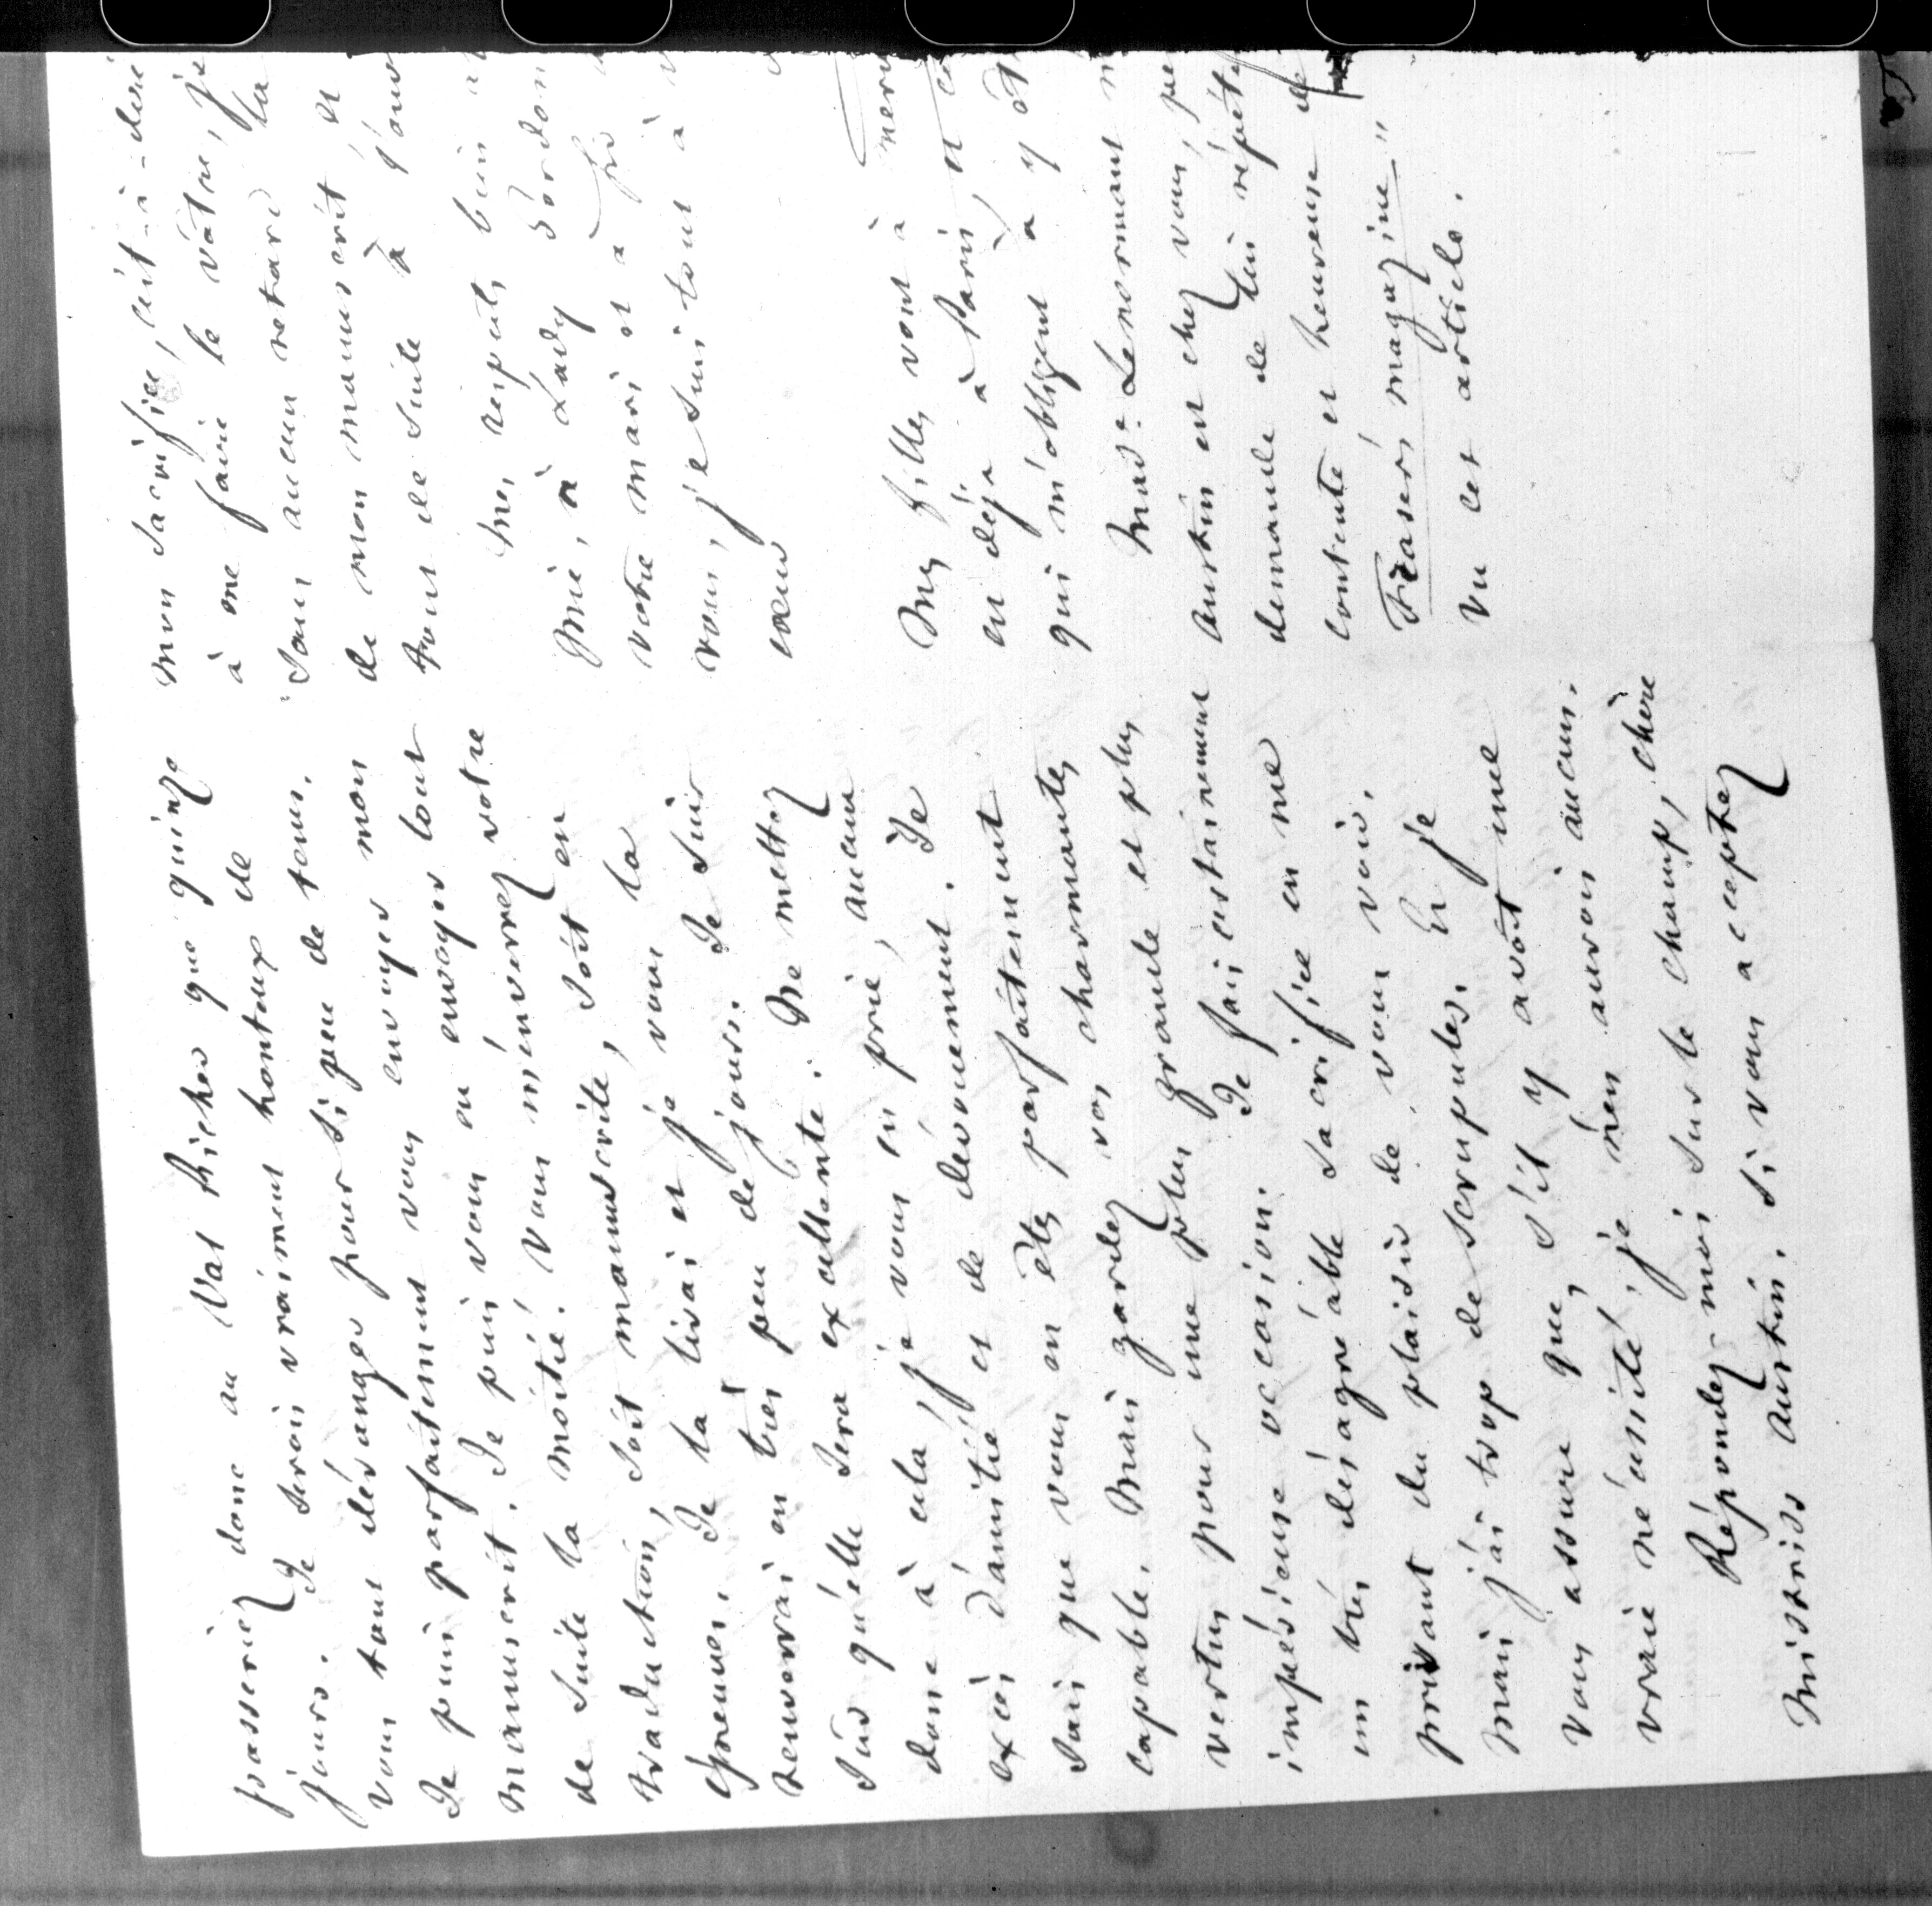 passeriez donc au Val Richer que quinze
jours. Je serois vraiment honteux de
vous tant déranger pour si peu de tems.
Je puis parfaitement vous envoyer mon
manuscrit. Je puis vous en envoyer tout
de suite la moitié. Vous m'enverrez votre
traduction, soit manuscrite, soit en
épreuves. Je la lirai et je vous la
renverrai en très peu de jours. Je suis
sûr qu'elle sera excellente. Ne mettez
donc à cela, je vous en prie, aucun
excès d'amitié et de dévouement. Je
sais que vous en êtes parfaitement
capable. Mais gardez vos charmantes
vertus pour une plus grande et plus
impérieuse occasion. Je fais certainement
un très désagréable sacrifice en me
privant du plaisir de vous voir.
Mais j'ai trop de scrupules. Et je
vous assure que, s'il y avoit une
vraie nécessité, je n'en aurois aucun.
Répondez-moi sur le champ, chère
Mistriss Austin. Si vous acceptez
mon sacrifice, c'est-à-dire
à me faire le vôtre, je
sans aucun retard la
de mon manuscrit, et
tout de suite à
Mes respects, bien
à Lady Gordon
votre mari et à
vous, je suis tout à
cœur
Mes filles vont à
est déjà à Paris, et
qui m'obligent à y
Made Lenormant
Austin est chez vous,
demande de lui répéter
contente et heureuse de
Fraser's magazine"
vu cet article.